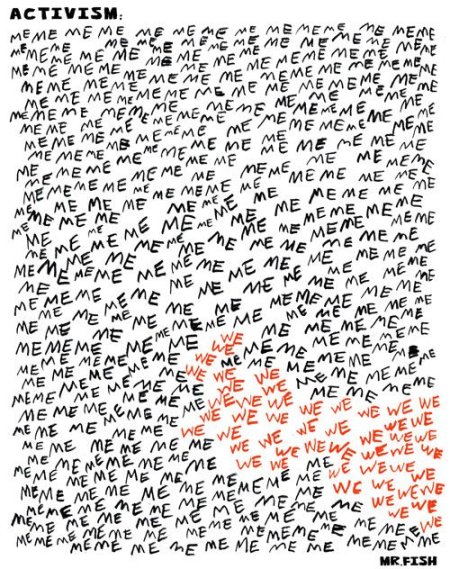 ACTIVISM:
ME ME ME ME ME ME ME ME ME ME ME ME
ME ME ME ME ME ME ME ME ME ME ME ME ME
ME ME ME ME ME ME ME ME ME ME ME ME
ME ME ME ME ME ME ME ME ME ME ME ME
ME ME ME ME ME ME ME ME ME ME ME ME
ME ME ME ME ME ME ME ME ME ME ME ME
ME ME ME ME ME ME ME ME ME ME ME ME
ME ME ME ME ME ME ME ME ME ME ME
ME ME ME ME ME ME ME ME ME ME ME
ME ME ME ME ME ME ME ME ME ME ME
ME ME ME ME ME ME ME ME ME ME ME
ME ME ME ME ME ME ME ME ME ME ME
ME ME ME ME ME ME ME ME ME ME
ME ME ME ME ME ME ME ME ME ME
ME ME ME ME ME ME ME ME ME ME
ME ME ME ME ME ME ME ME ME ME
ME ME ME ME ME ME ME ME ME ME
ME ME ME ME ME ME WE ME ME ME ME
ME ME ME ME ME WE ME ME ME ME ME
ME ME ME ME WE ME ME ME ME ME ME
ME ME ME ME WE WE WE ME ME ME
ME ME ME ME WE WE ME ME ME ME
ME ME ME ME WE WE WE WE WE WE WE WE
ME ME ME ME WE WE WE WE WE WE WE
ME ME ME ME WE WE WE WE WE WE WE
ME ME ME ME ME WE WE WE WE WE WE WE
ME ME ME ME ME WE WE ME WE WE WE
ME ME ME ME ME ME ME WE WE WE WE
ME ME ME ME ME ME ME ME WE WE WE
ME ME ME ME ME ME ME ME ME WE WE
ME ME ME ME ME ME ME ME ME ME WE
ME ME ME ME ME ME ME ME ME ME ME
MR.FISH